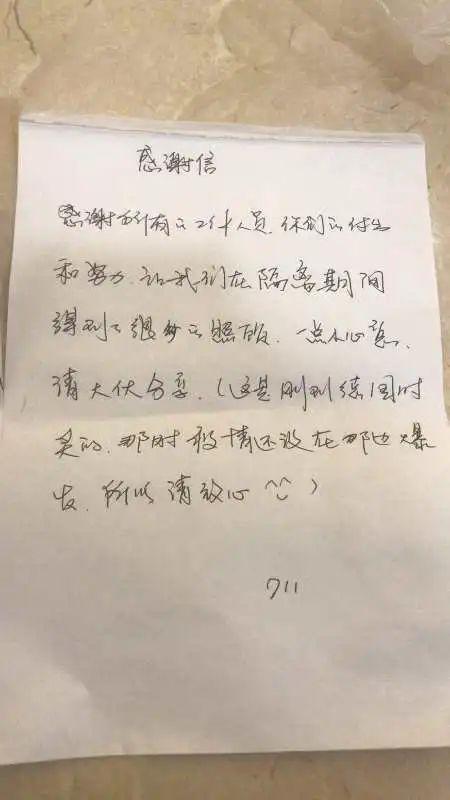 感谢信
感谢所有的工作人员,你们的付出
和努力,让我们在隔离期间
得到了很好的照顾,一点小心意,
请大伙分享,(这是刚到德国时
买的,那时疫情还没在那边爆
发,所以请放心^◡^)
711